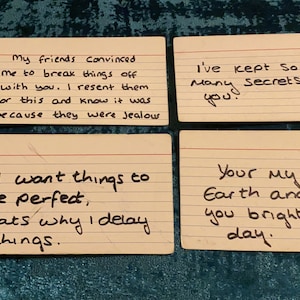 My friends convinced
me to break things off
with you. I resent them
for this and know it was
because they were jealous
I've kept so
many secrets
you.
I want things to
be perfect,
thats why I delay
things.
Your my
Earth and
you bright
day.